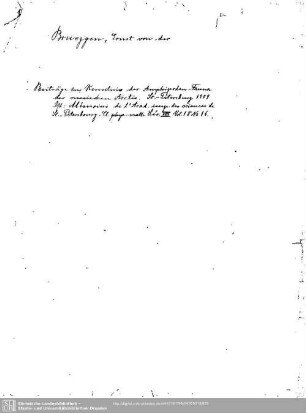 Brueggen, Ernst von der
Beiträge zur Kenntnis der Amphipoden-Fauna
der russischen Arctis. St. Petersburg 1909
Mémoires de l'Acad. imp. des sciences de
St. Pétersbourg. Cl. phys.-math. Sér. VIII. Bd. 18. No 16.
Sächsische Landesbibliothek -
Staats- und Universitätsbibliothek Dresden